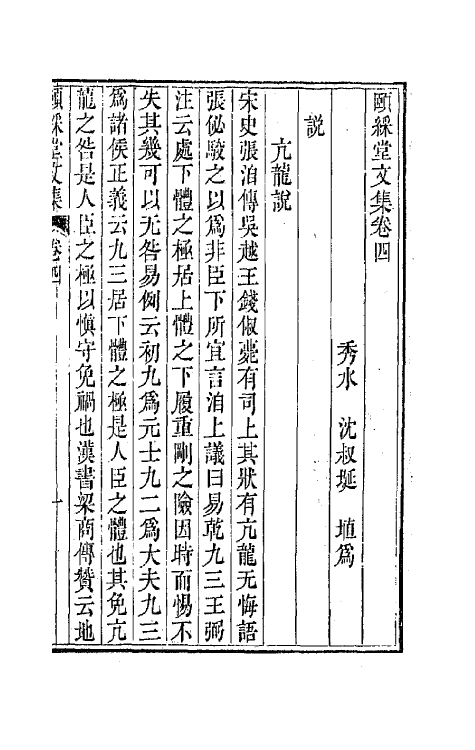 頤綵堂文集卷四
秀水　沈叔埏　埴爲
說
亢龍說
宋史張洎傳吳越王錢俶薨有司上其狀有亢龍无悔語
張佖駮之以爲非臣下所宜言洎上議曰易乾九三王弼
注云處下體之極居上體之下履重剛之險因時而惕不
失其幾可以无咎易例云初九爲元士九二爲大夫九三
爲諸侯正義云九三居下體之極是人臣之體也其免亢
龍之咎是人臣之極以愼守免禍也漢書梁商傳贊云地
頤綵堂文集　卷四　一